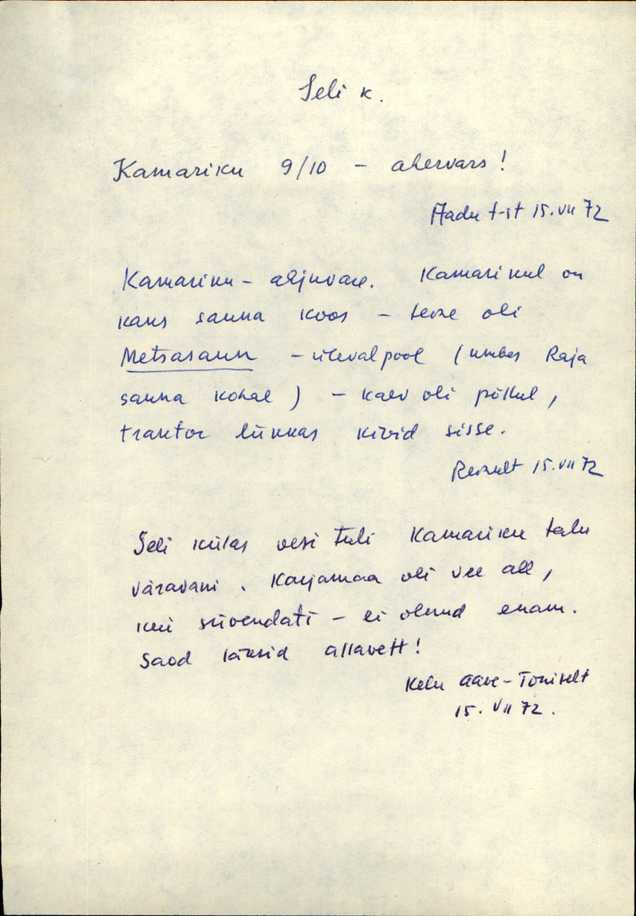 Seli k.
Kamariku 9/10 – ahervars!
Aadu t-st 15. VII 72
Kamariku – ahjuvare. Kamarikul on
kaks sauna koos – teine oli
Metsasaun – ülevalpool (umbes Raja
sauna kohal) – kaev oli põllul,
traktor lükkas kivid sisse.
15. VII 72
Seli külas vesi tuli Kamariku talu
väravani. Karjamaa oli vee all,
kui süvendati – ei olnud enam.
Saod läksid allavett!
Kelu Aare-Toniselt
15. VII 72.